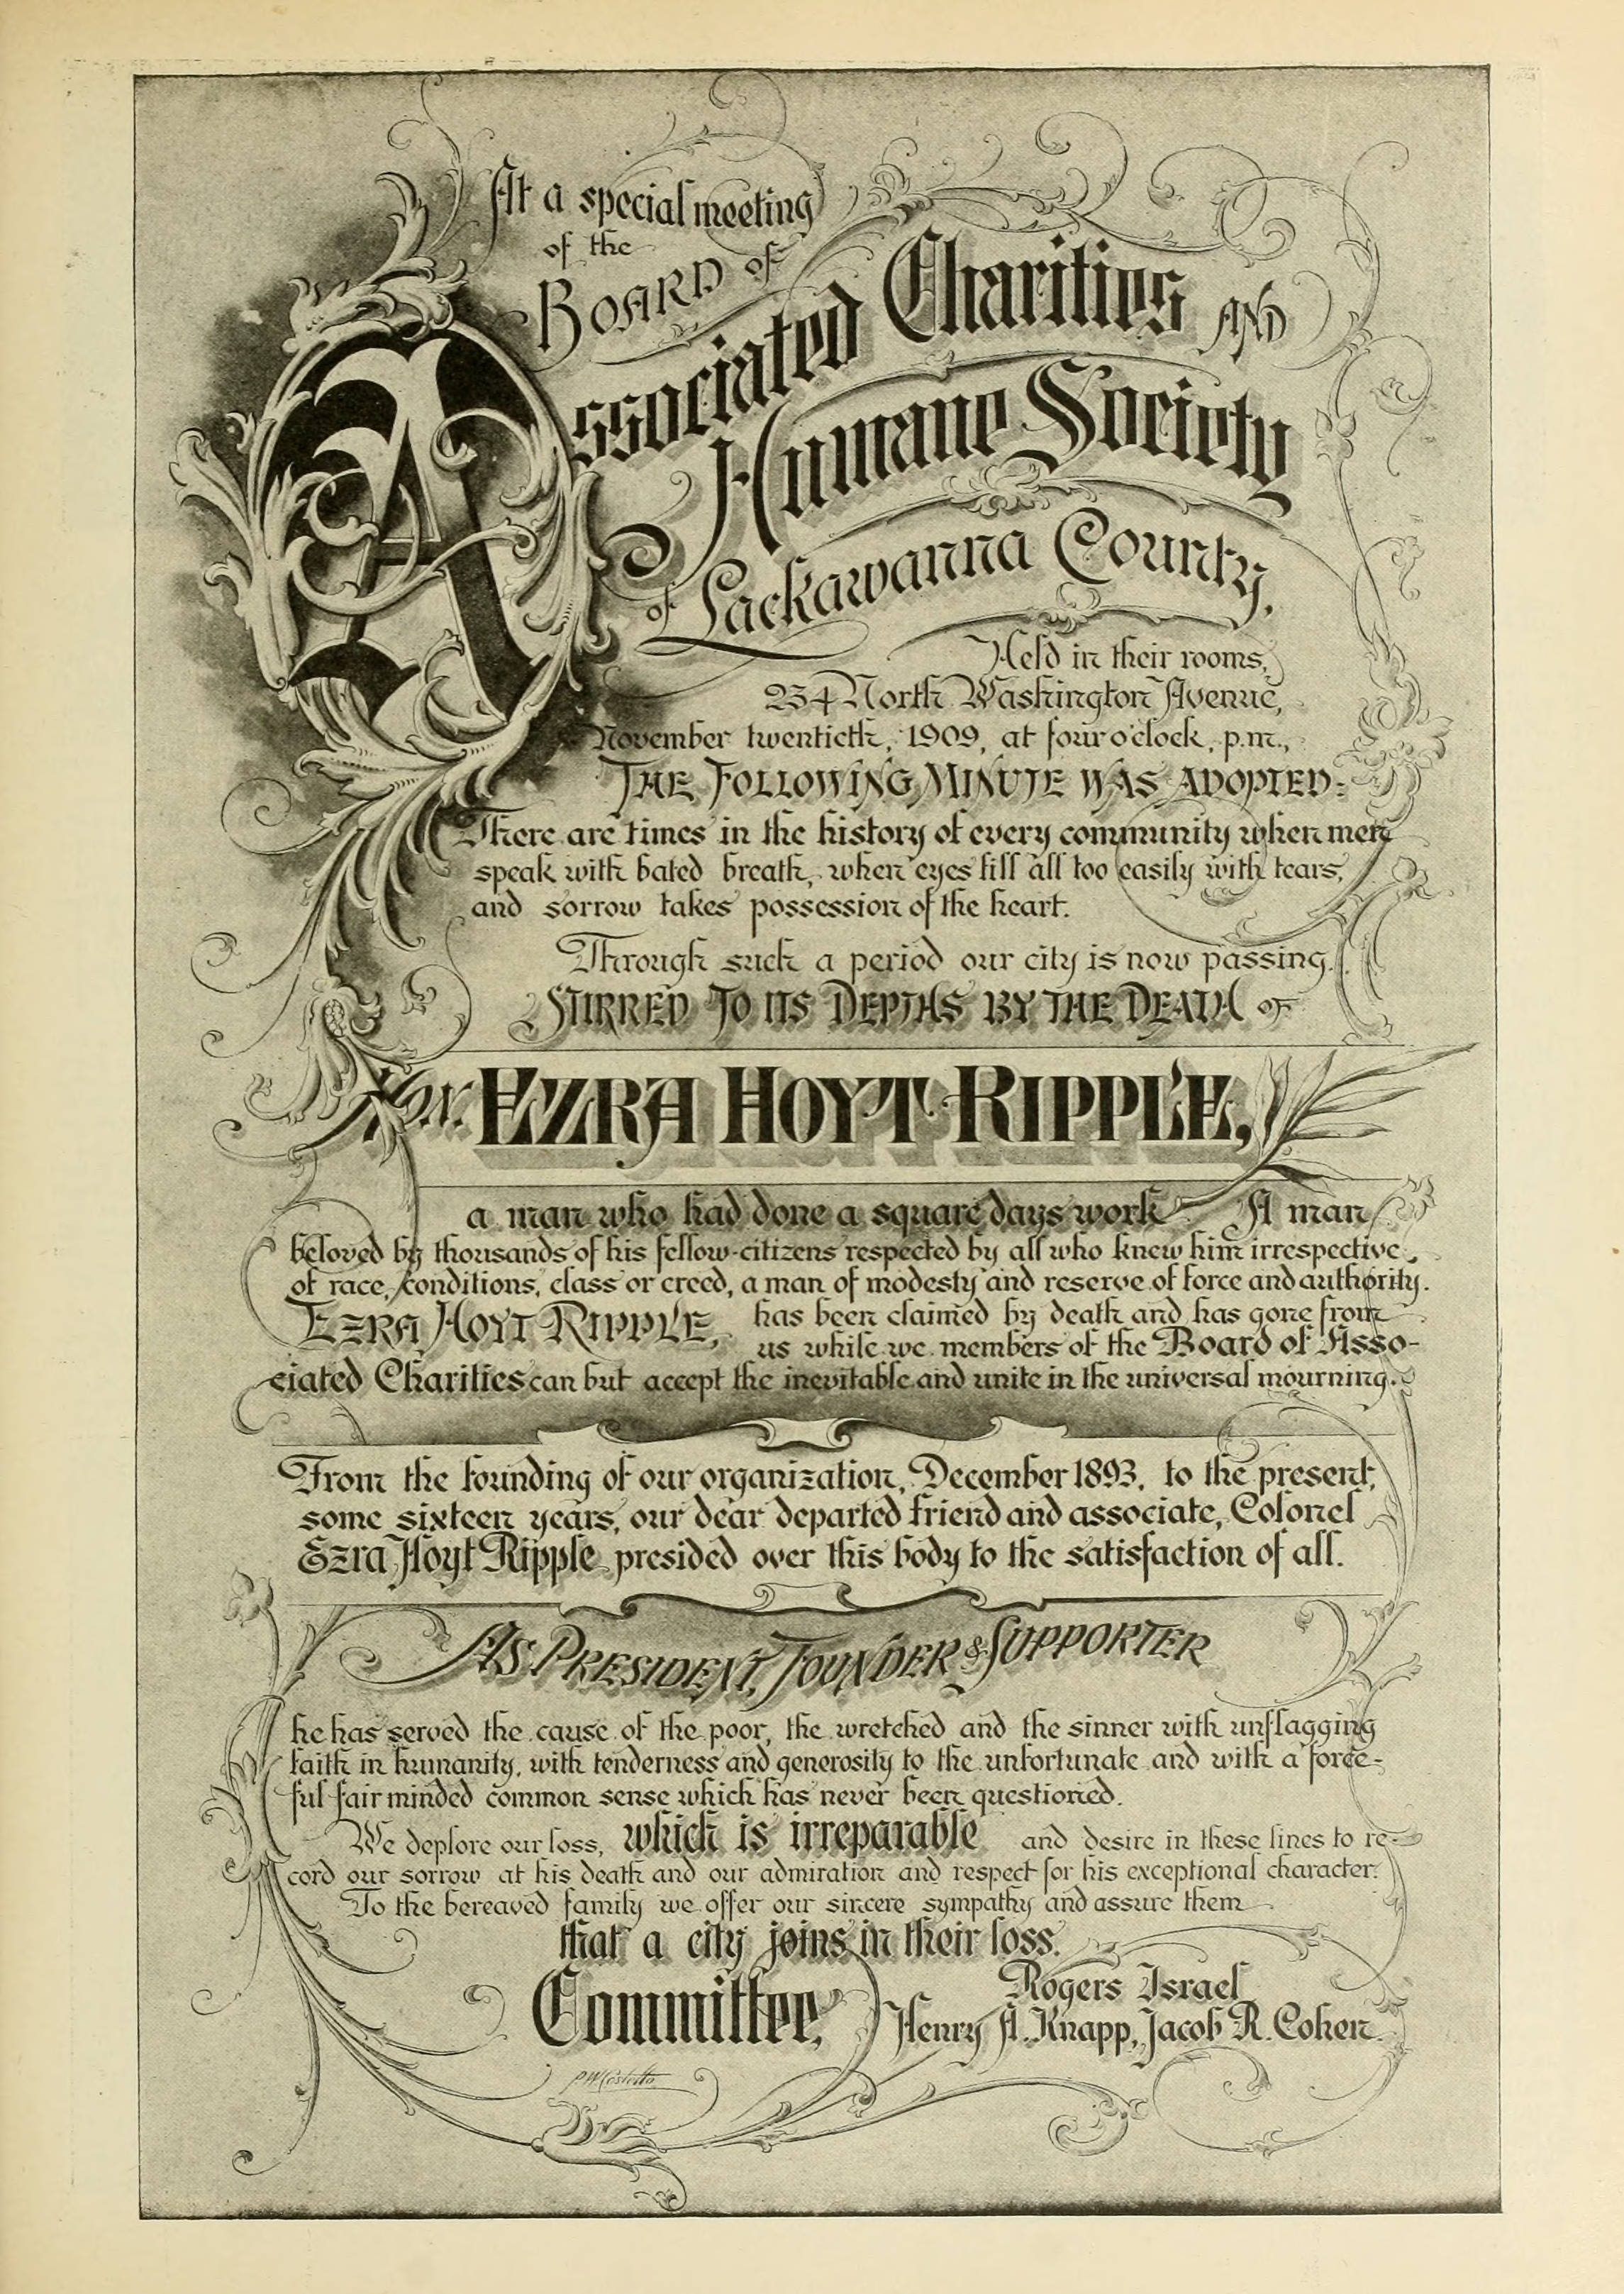 At a special meeting
of the
BOARD OF
Associated Charities AND
Humane Society
of Lackawanna County,
Held in their rooms,
234 North Washington Avenue,
November twentieth, 1909, at four o'clock, p.m.,
THE FOLLOWING MINUTE WAS ADOPTED:
There are times in the history of every community when men
speak with bated breath, when eyes fill all too easily with tears,
and sorrow takes possession of the heart.
Through such a period our city is now passing
STIRRED TO ITS DEPTHS BY THE DEATH OF
Hon. EZRA HOYT RIPPLE,
a man who had done a square days work A man
beloved by thousands of his fellow-citizens respected by all who knew him irrespective
of race, conditions, class or creed, a man of modesty and reserve of force and authority.
EZRA HOYT RIPPLE, has been claimed by death and has gone from
us while we members of the Board of Asso-
ciated Charities can but accept the inevitable and unite in the universal mourning.
From the founding of our organization, December 1893, to the present,
some sixteen years, our dear departed friend and associate, Colonel
Ezra Hoyt Ripple presided over this body to the satisfaction of all.
AS PRESIDENT, FOUNDER & SUPPORTER
he has served the cause of the poor, the wretched and the sinner with unflagging
faith in humanity, with tenderness and generosity to the unfortunate and with a force-
ful fair minded common sense which has never been questioned.
We deplore our loss, which is irreparable and desire in these lines to re-
cord our sorrow at his death and our admiration and respect for his exceptional character.
To the bereaved family we offer our sincere sympathy and assure them
that a city joins in their loss.
Rogers Israel
Committee, Henry A. Knapp, Jacob R. Cohen.
P.W. Costello